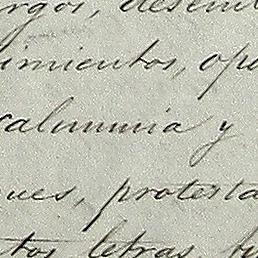 rgos, desem
imientos, opo
calumnia y
ques, protesta
tos letras,